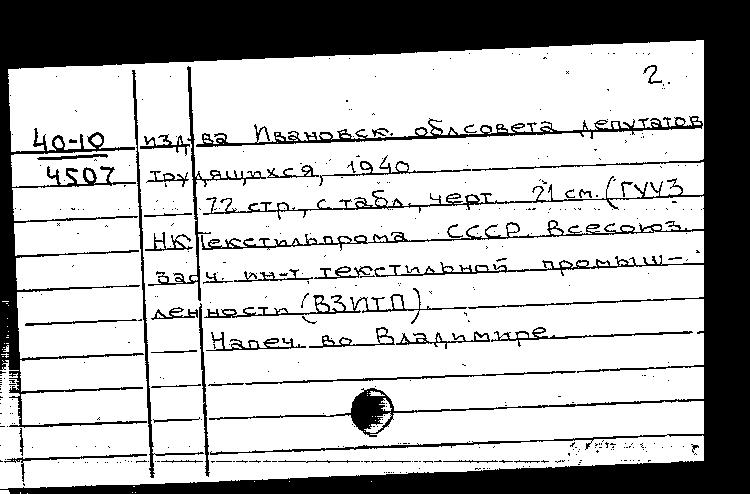 2.
40-10 изд-ва Ивановск. облсовета депутатов
4507 трудящихся, 1940.
72 стр., с табл., черт. 21 см. (ГУУЗ
НК Текстильпрома СССР. Всесоюз.
заоч. ин-т текстильной промыш-
ленности (ВЗИТП).
Напеч. во Владимире.